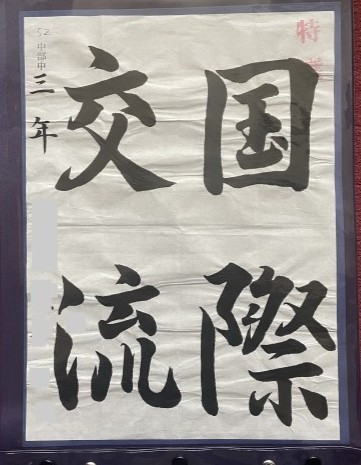 特
国際
交流
52
中部中
三年